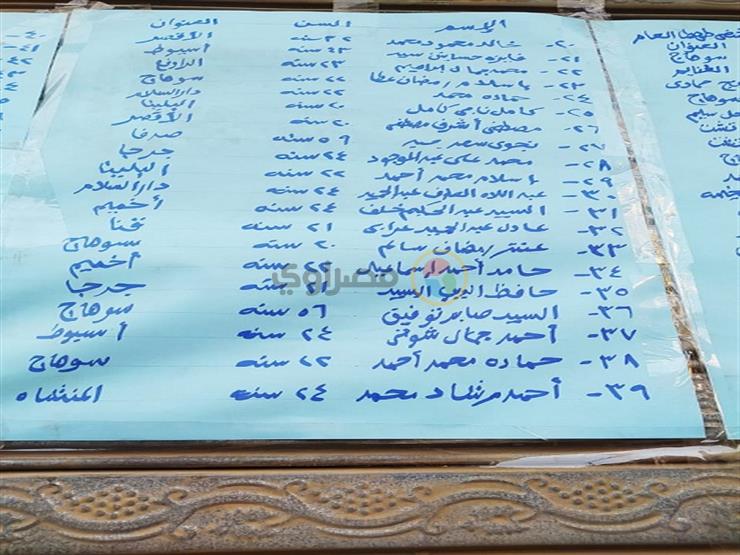 الاسم السن العنوان
٢٠- خالد محمود محمد ٣٢ سنه الأقصر
٢١- فايزه حساني سيد ٤٣ سنه أسيوط
٢٢- محمد جمال ابراهيم ٢٣ سنه
٢٣- إسلام رمضان عطا ٢٢ سنه سوهاج
٢٤- حماده محمد ٢٢ سنه دار السلام
٢٥- كامل ناجي كامل ٢٠ سنه البلينا
٢٦- مصطفى أشرف مصطفى ٢٠ سنه الأقصر
٢٧- نجوى سعد سيد ٥٩ سنه صدفا
٢٨- محمد على عبد الموجود ٢٤ سنه جرجا
٢٩- إسلام محمد أحمد ٢٢ سنه البلينا
٣٠- عبد اللاه العارف عبد الحميد ٢٤ سنه دار السلام
٣١- السيد عبد الحكيم خلف ٢٤ سنه أخميم
٣٢- عادل عبد الحميد عرابى ٢١ سنه قنا
٣٣- عنتر رمضان سالم ٢٠ سنه سوهاج
٣٤- حامد أحمد اسماعيل ٢٢ سنه أخميم
٣٥- حافظ الديب السيد ٢١ سنه جرجا
٣٦- السيد صابر توفيق ٥٦ سنه سوهاج
٣٧- أحمد جمال شوقى ٢٤ سنه أسيوط
٣٨- حماده محمد أحمد ٢٢ سنه سوهاج
٣٩- أحمد رشاد محمد ٢٤ سنه المنشاه
مصراوي
طهطا العام
العنوان
سوهاج
سوهاج